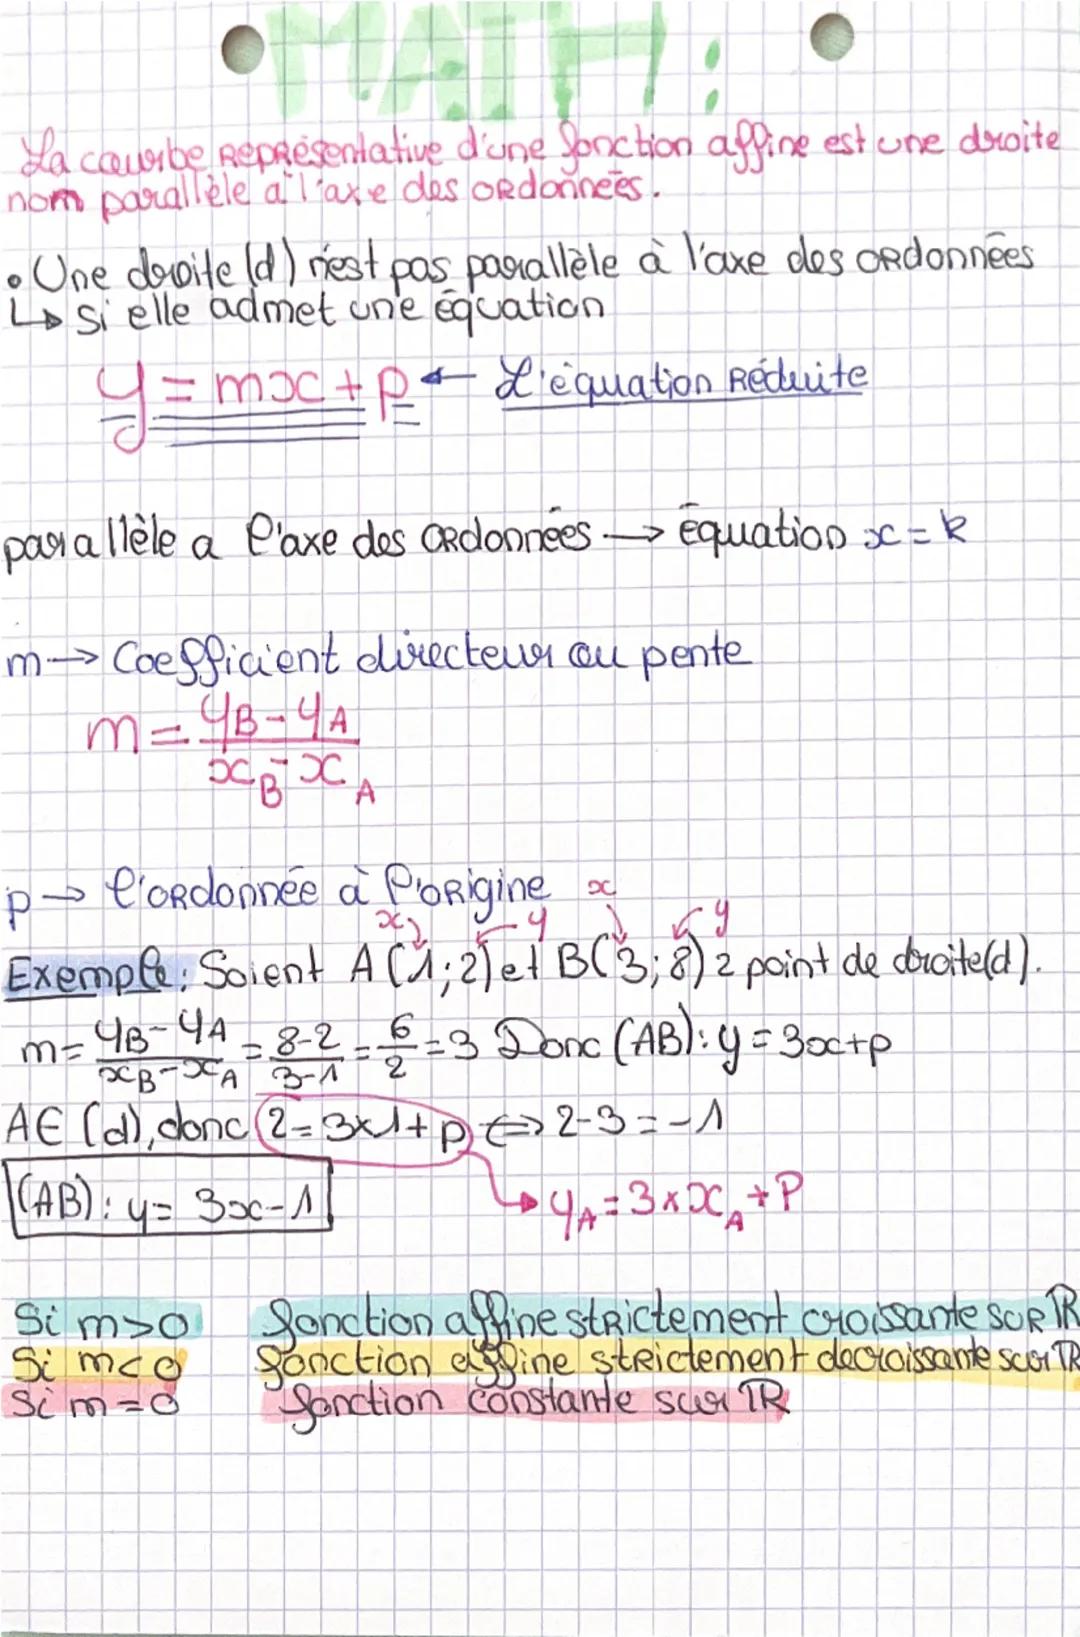 MATH :
La courbe représentative d'une fonction affine est une droite
nom parallèle a l'axe des ordonnées.
• Une droite (d) n'est pas parallèle à l'axe des ordonnées
↳ si elle admet une équation
y = mx + p ← L'équation Réduite
parallèle a l'axe des ordonnées → équation x = k
m → Coefficient directeur ou pente
m = (yB - yA)/(xB - xA)
p → l'ordonnée à l'origine
x y x y
Exemple : Soient A (1;2) et B(3;8) 2 point de droite(d).
m = (yB - yA)/(xB - xA) = (8-2)/(3-1) = 6/2 = 3 Donc (AB): y = 3x+p
A ∈ (d), donc 2 = 3x1+p ⟺ 2-3 = -1
(AB): y = 3x-1 → yA = 3 × xA + P
Si m>0 fonction affine strictement croissante sur ℝ
Si m<0 fonction affine strictement decroissante sur ℝ
Si m=0 fonction constante sur ℝ